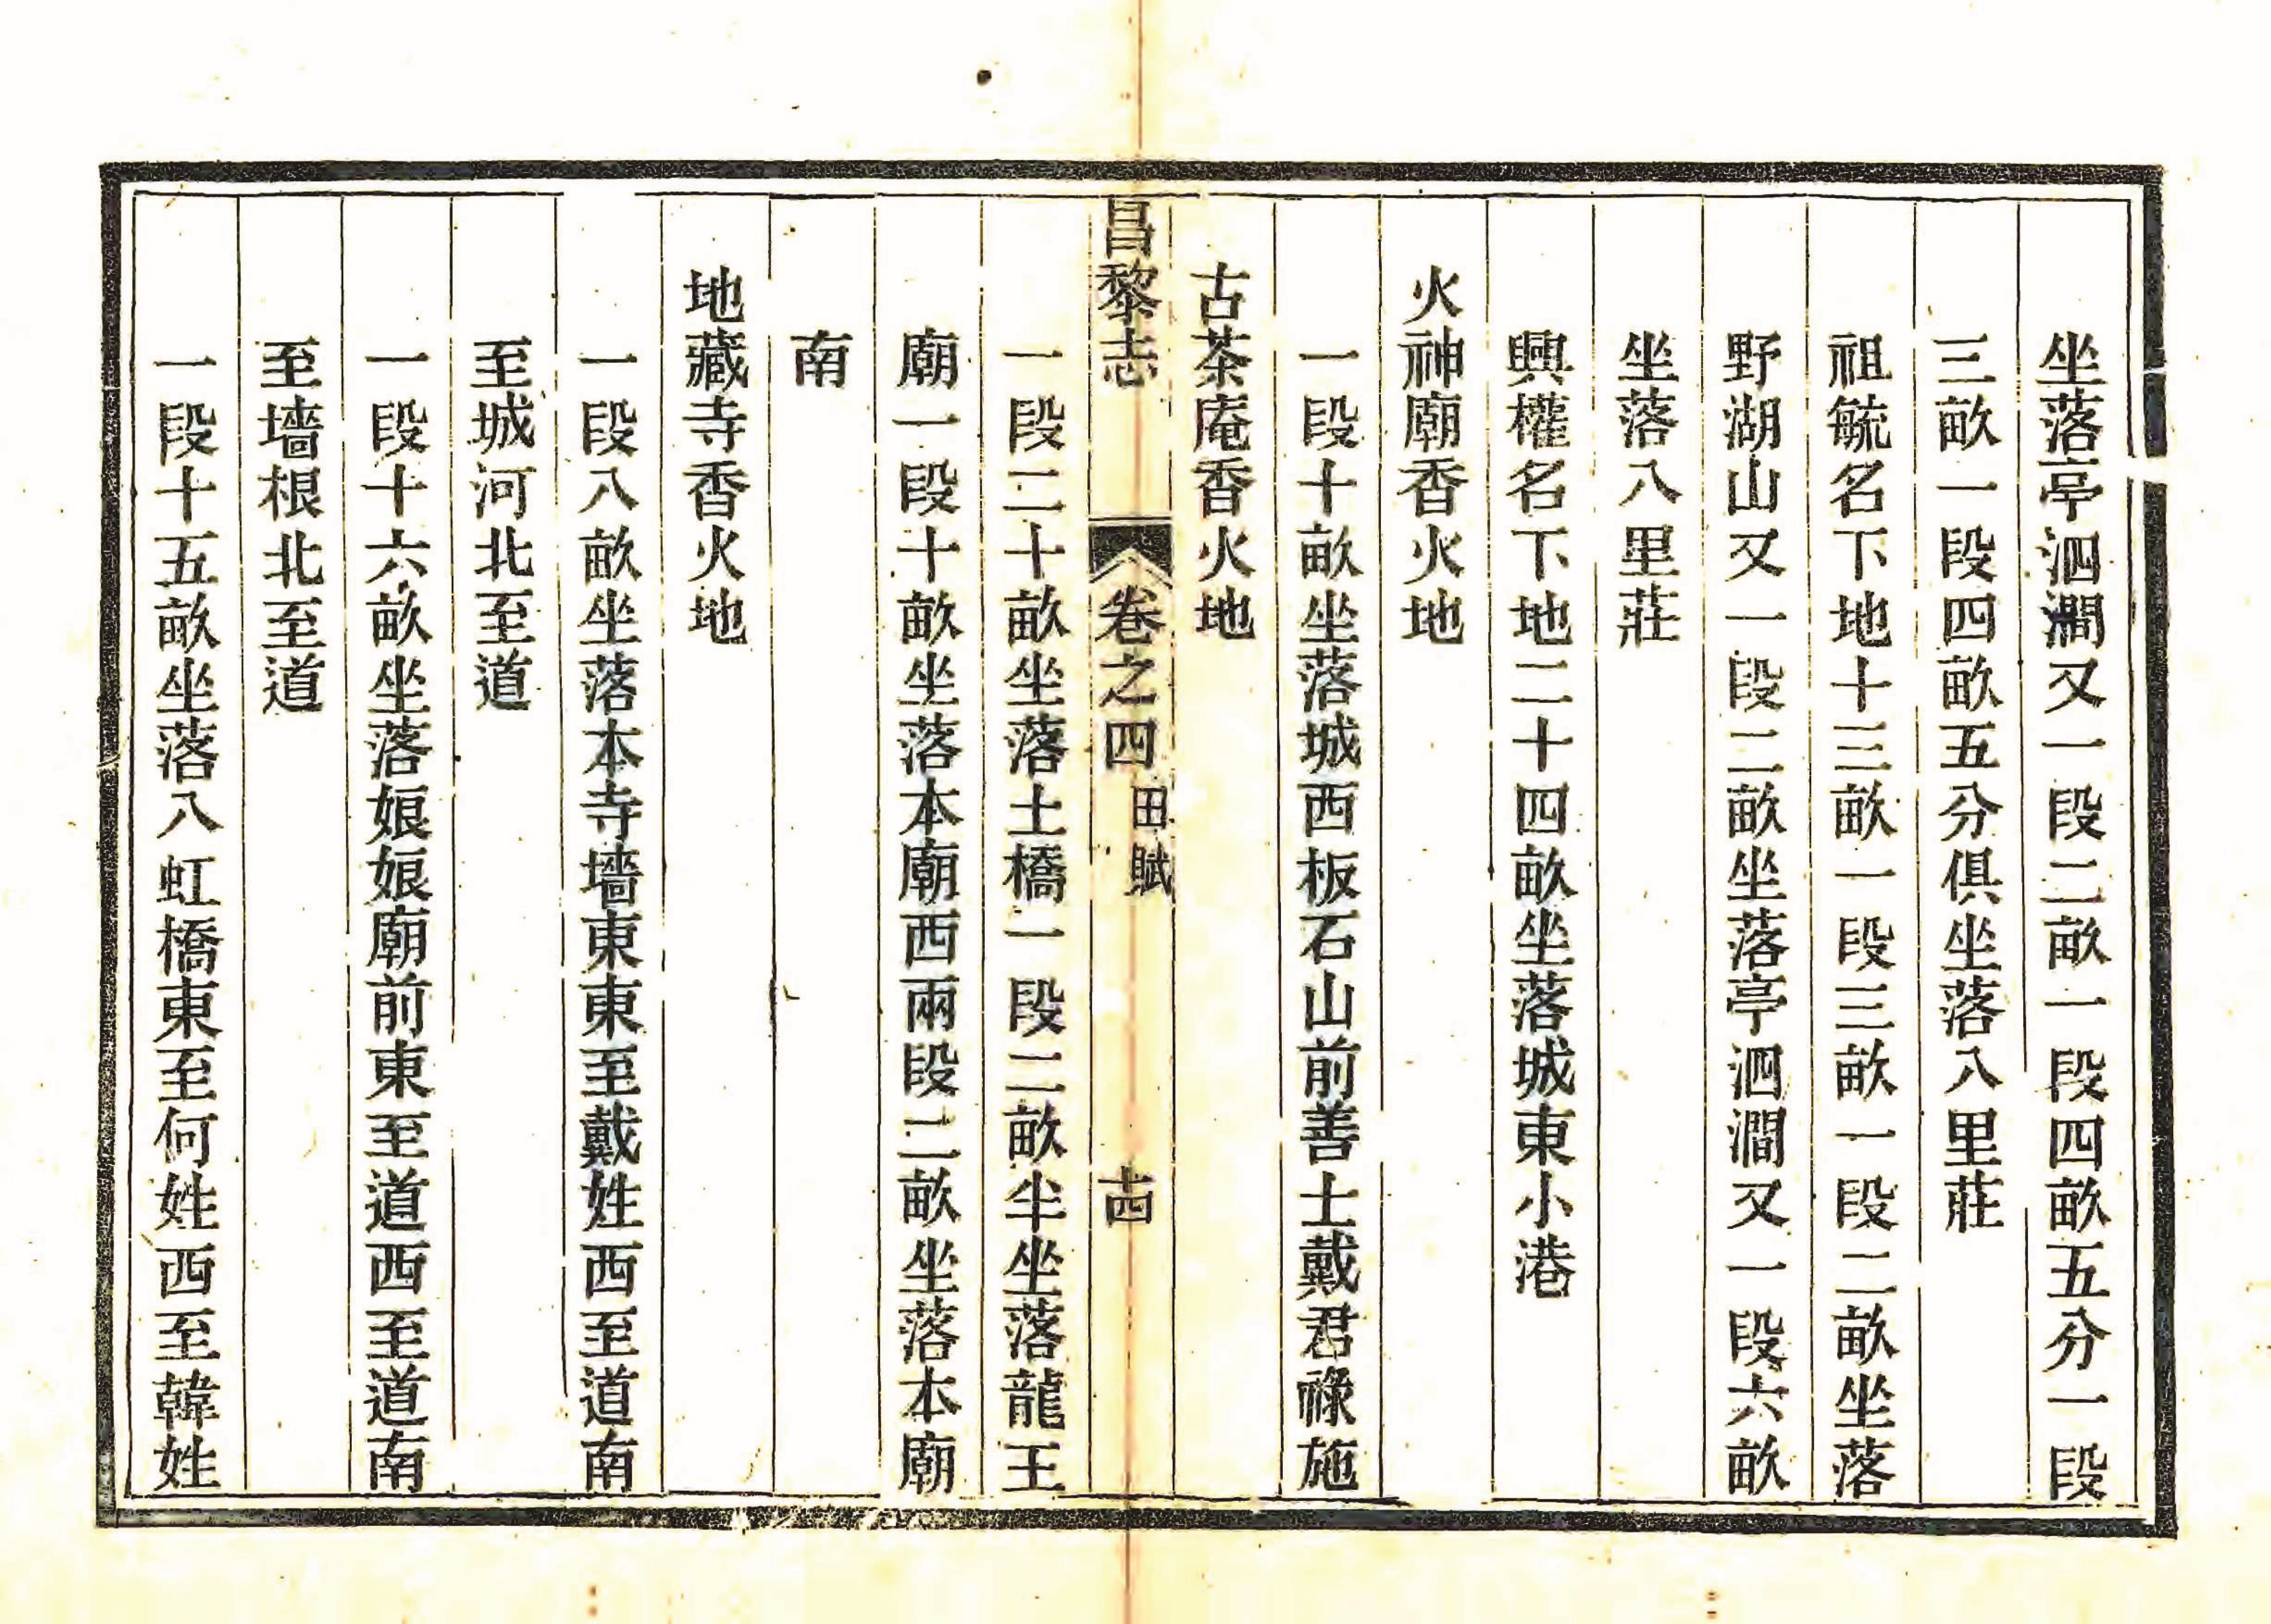 坐落亭泗澗又一段二畝一段四畝五分一段
三畝一段四畝五分俱坐落八里莊
祖毓名下地十三畝一段三畝一段二畝坐落
野湖山又一段二畝坐落亭泗澗又一段六畝
坐落八里莊
興權名下地二十四畝坐落城東小港
火神廟香火地
一段十畝坐落城西板石山前善士戴君祿施
古茶庵香火地
昌黎志 卷之四 田賦 十四
一段二十畝坐落土橋一段二畝半坐落龍王
廟一段十畝坐落本廟西兩段二畝坐落本廟
南
地藏寺香火地
一段八畝坐落本寺墻東東至戴姓西至道南
至城河北至道
一段十六畝坐落娘娘廟前東至道西至道南
至墻根北至道
一段十五畝坐落八虹橋東至何姓西至韓姓